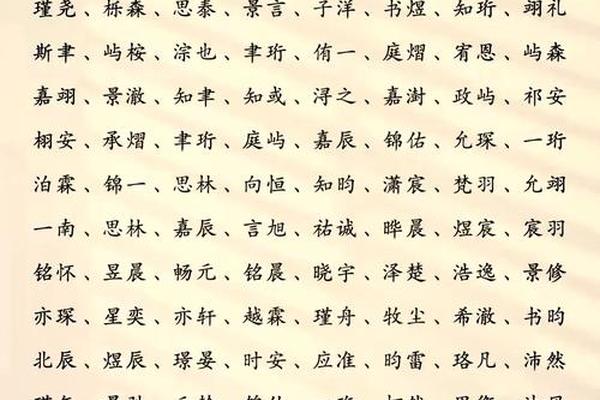 瑾尧、栎森、思泰、景言、子洋、书煜、知珩、翊礼
斯聿、屿桉、淙也、聿珩、侑一、庭熠、宥恩、屿森
嘉翊、景澈、知聿、知或、浔之、嘉澍、政屿、祁安
栩安、承熠、聿珩、庭屿、嘉辰、锦佑、允琛、一珩
泊霖、锦一、思林、向恒、知昀、潇宸、梵羽、允翊
一南、思林、嘉辰、言旭、祐诚、晔晨、煜宸、宸羽
铭怀、昱晨、畅元、铭晨、晓宇、泽楚、浩逸、景修
亦琛、星奕、亦轩、越霖、瑾舟、牧尘、希澈、书昀
北辰、煜辰、璟晏、时安、应准、昀雷、珞凡、沛然